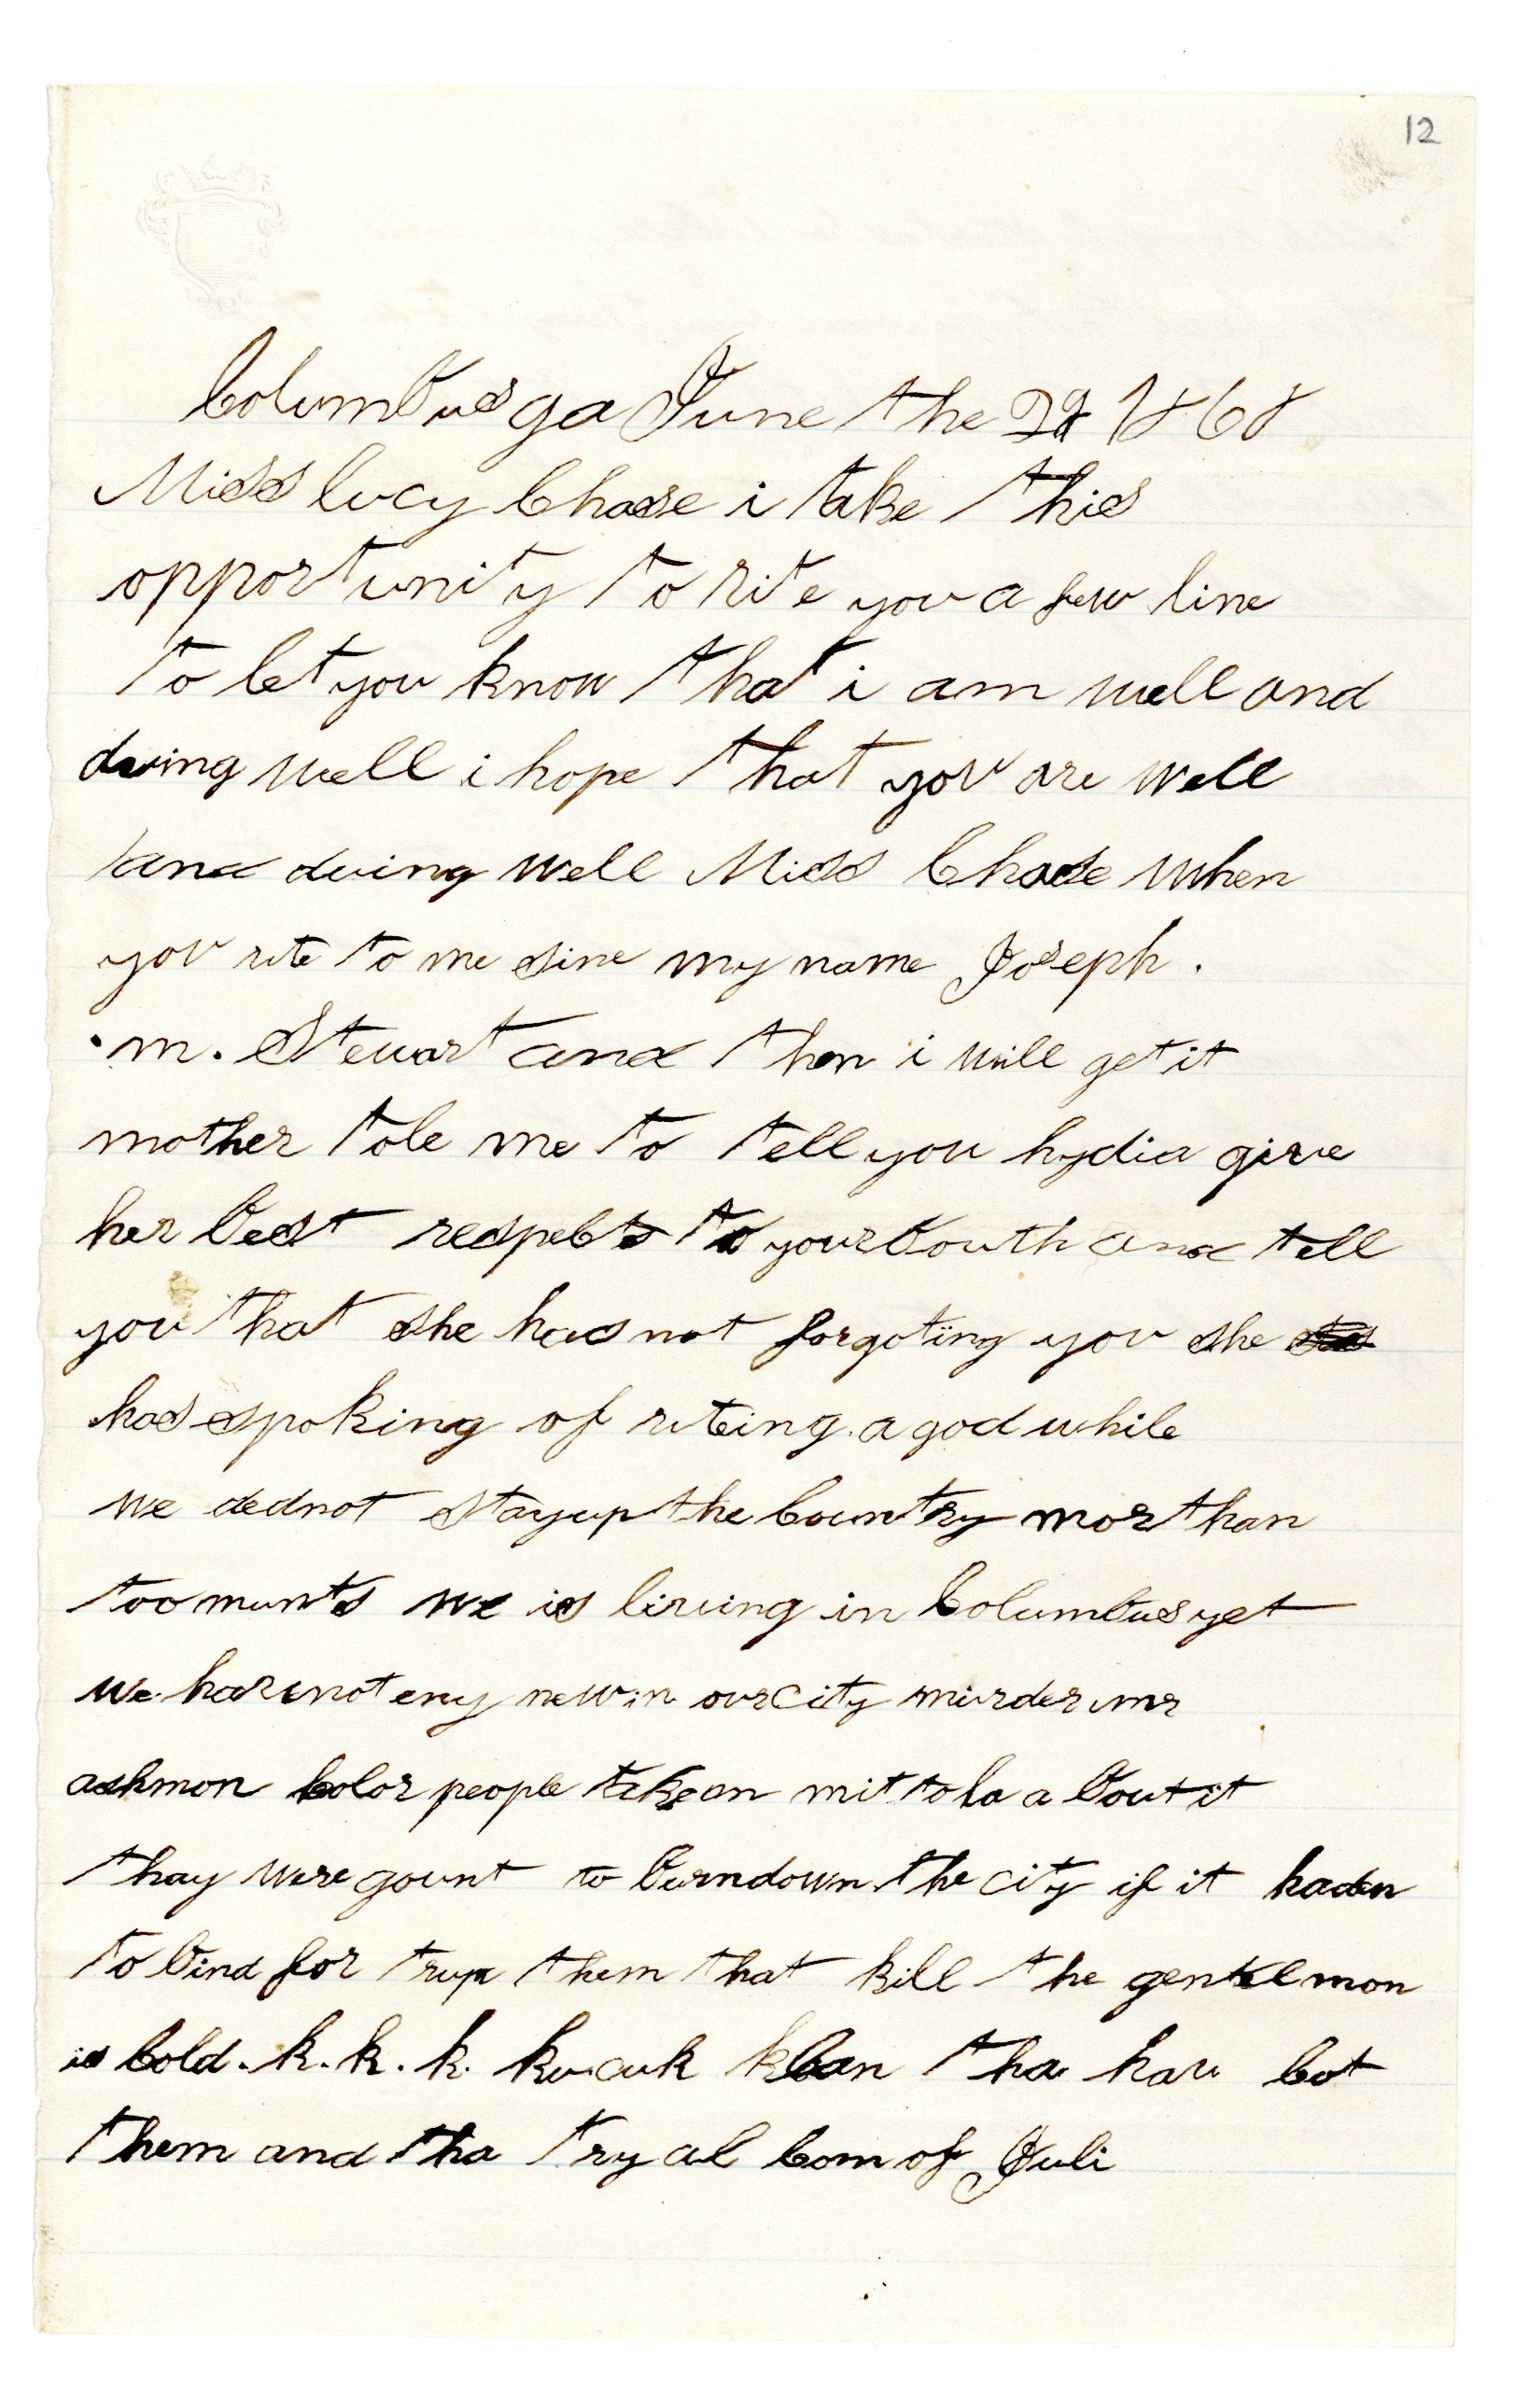 12
Columbus ga June the 22 1868
Miss lucy Chase i take this
opportunity to rite you a few line
to let you know that i am well and
duing well i hope that you are well
and duing well Miss Chase when
you rite to me sine my name Joseph.
. m. Stewart and then i will get it
mother tole me to tell you lydia give
her best respects to your bouth and tell
you that she has not forgoting you she
has spoking of riteing a god while
we dednot stay up the Country mor than
too munts we is living in Columbus yet
we have not eny new in our City murder mr
ashmon Color people take on mit to ha a bout it
thay were gount to burn down the city if it haden
to bind for trup them that kill the gentelmon
is Cold. k. k. k. ku cuk klan tha hav Cot
them and tha try al Com of Juli